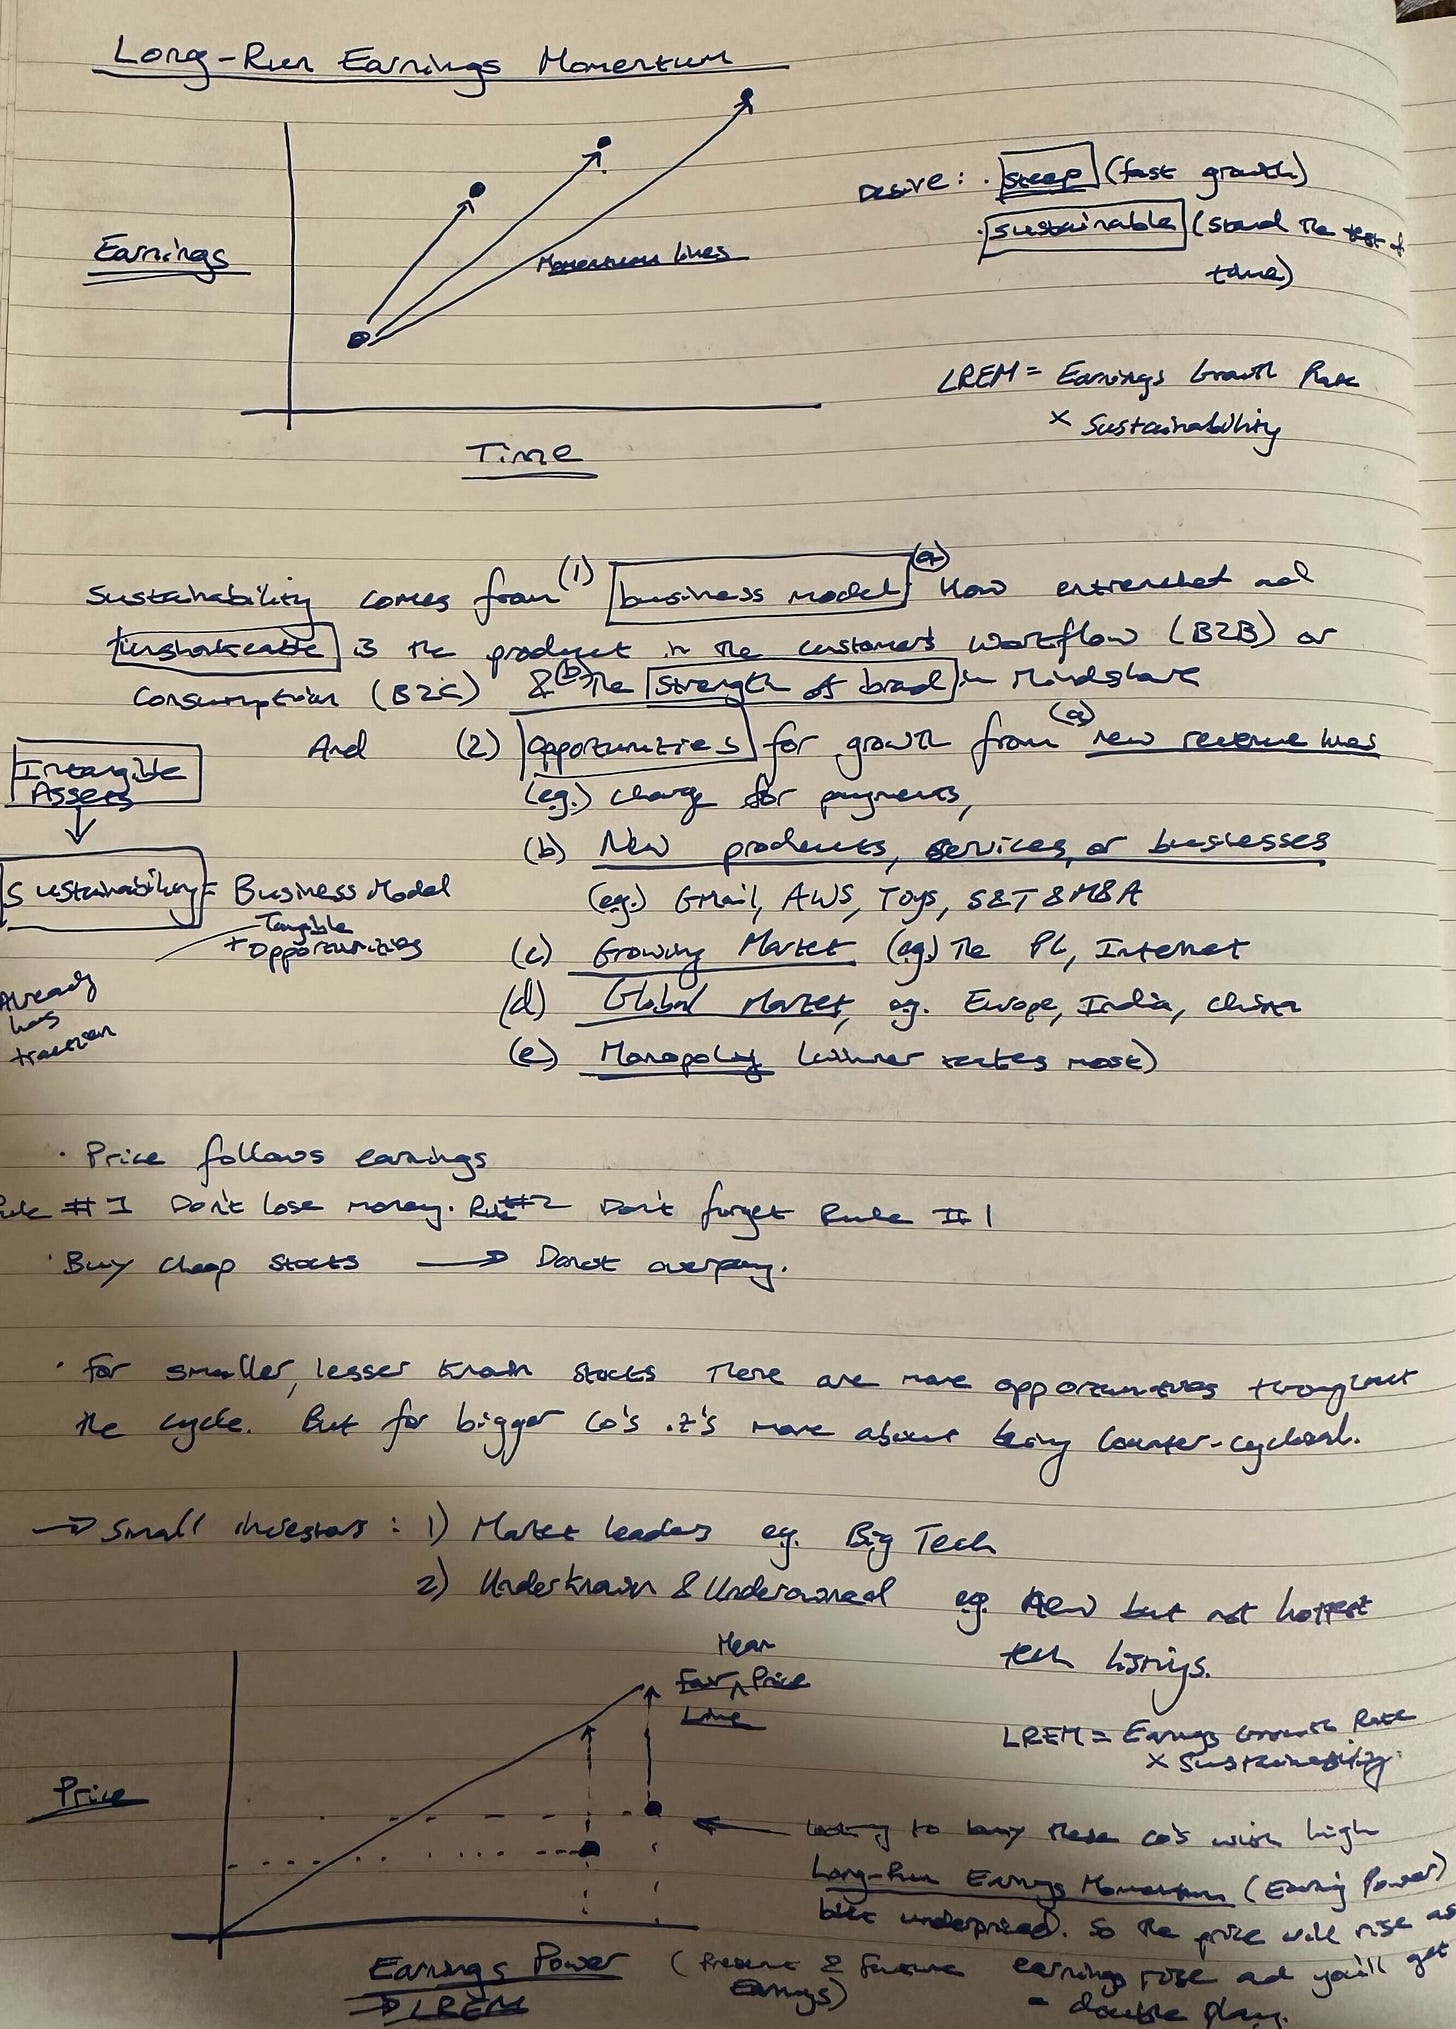 Long-Run Earnings Momentum
Earnings
Momentum lines
Time
Desire: · steep (fast growth)
· sustainable (stand the test of
time)
LREM = Earnings Growth Rate
× Sustainability
Sustainability comes from (1) business model (a) How entrenched and
unshakeable is the product in the customer's workflow (B2B) or
consumption (B2C) & (b) the strength of brand in Mindshare
And (2) opportunities for growth from (a) new revenue lines
(eg.) charge for payments,
(b) New products, services, or businesses
(eg.) Gmail, AWS, Toys, S&T & M&A
(c) Growing Market (eg.) The PC, Internet
(d) Global Market, eg. Europe, India, China
(e) Monopoly (winner takes most)
Intangible
Assets
Sustainability = Business Model
Tangible
+ Opportunities
Already
has
traction
· Price follows earnings
Rule #1 Don't lose money. Rule #2 Don't forget Rule #1
· Buy cheap stocks → Do not overpay.
· For smaller, lesser known stocks there are more opportunities throughout
the cycle. But for bigger co's it's more about being counter-cyclical.
→ Small investors: 1) Market leaders eg. Big Tech
2) Underknown & Underowned eg. New but not hottest
tech listings.
Mean
Fair ^ Price
Line
LREM = Earnings Growth Rate
× Sustainability
Price
looking to buy these co's with high
Long-Run Earnings Momentum (Earning Power)
but underpriced. So the price will rise as
earnings rise and you'll get
a double play.
Earnings Power (Present & Future
Earnings)
→ LREM